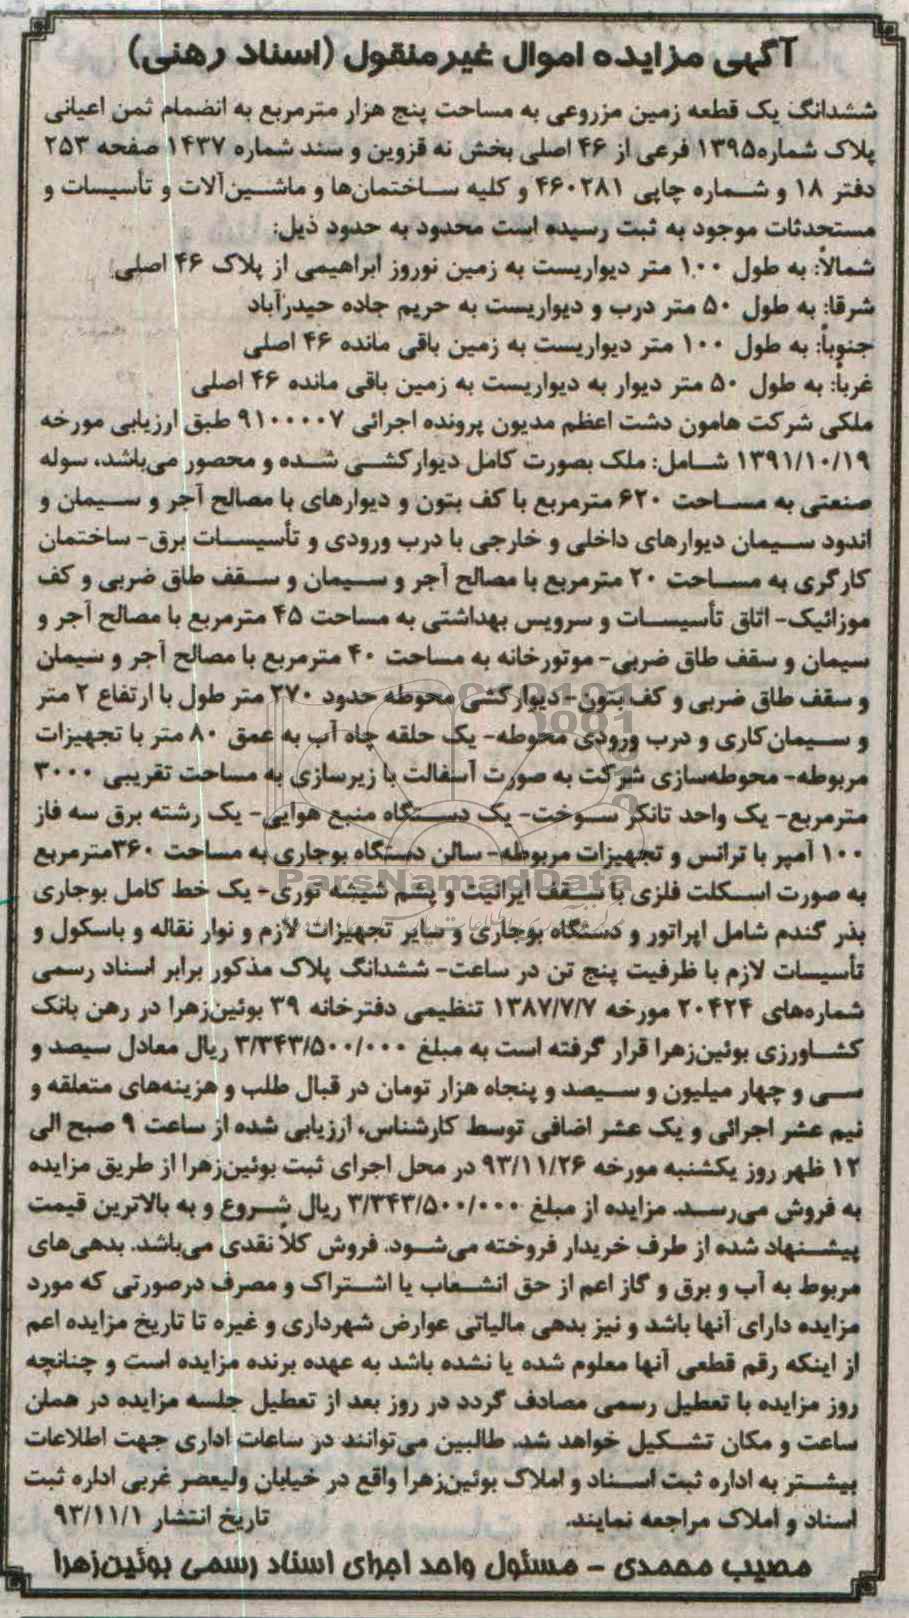 آگهی مزایده اموال غیرمنقول (اسناد رهنی)
ششدانگ یک قطعه زمین مزروعی به مساحت پنج هزار مترمربع به انضمام ثمن اعیانی
پلاک شماره۱۳۹۵ فرعی از ۴۶ اصلی بخش نه قزوین و سند شماره ۱۴۳۷ صفحه ۲۵۳
دفتر ۱۸ و شماره چاپی ۴۶۰۲۸۱ و کلیه ساختمان‌ها و ماشین‌آلات و تأسیسات و
مستحدثات موجود به ثبت رسیده است محدود به حدود ذیل:
شمالاً: به طول ۱۰۰ متر دیواریست به زمین نوروز ابراهیمی از پلاک ۴۶ اصلی
شرقا: به طول ۵۰ متر درب و دیواریست به حریم جاده حیدرآباد
جنوباً: به طول ۱۰۰ متر دیواریست به زمین باقی مانده ۴۶ اصلی
غرباً: به طول ۵۰ متر دیوار به دیواریست به زمین باقی مانده ۴۶ اصلی
ملکی شرکت هامون دشت اعظم مدیون پرونده اجرائی ۹۱۰۰۰۰۷ طبق ارزیابی مورخه
۱۳۹۱/۱۰/۱۹ شامل: ملک بصورت کامل دیوارکشی شده و محصور می‌باشد، سوله
صنعتی به مساحت ۶۲۰ مترمربع با کف بتون و دیوارهای با مصالح آجر و سیمان و
اندود سیمان دیوارهای داخلی و خارجی با درب ورودی و تأسیسات برق- ساختمان
کارگری به مساحت ۲۰ مترمربع با مصالح آجر و سیمان و سقف طاق ضربی و کف
موزائیک- اتاق تأسیسات و سرویس بهداشتی به مساحت ۴۵ مترمربع با مصالح آجر و
سیمان و سقف طاق ضربی- موتورخانه به مساحت ۴۰ مترمربع با مصالح آجر و سیمان
و سقف طاق ضربی و کف بتون- دیوارکشی محوطه حدود ۲۷۰ متر طول با ارتفاع ۲ متر
و سیمان‌کاری و درب ورودی محوطه- یک حلقه چاه آب به عمق ۸۰ متر با تجهیزات
مربوطه- محوطه‌سازی شرکت به صورت آسفالت با زیرسازی به مساحت تقریبی ۳۰۰۰
مترمربع- یک واحد تانکر سوخت- یک دستگاه منبع هوایی- یک رشته برق سه فاز
۱۰۰ آمپر با ترانس و تجهیزات مربوطه- سالن دستگاه بوجاری به مساحت ۳۶۰مترمربع
به صورت اسکلت فلزی با سقف ایرانیت و پشم شیشه توری- یک خط کامل بوجاری
بذر گندم شامل اپراتور و دستگاه بوجاری و سایر تجهیزات لازم و نوار نقاله و باسکول و
تأسیسات لازم با ظرفیت پنج تن در ساعت- ششدانگ پلاک مذکور برابر اسناد رسمی
شماره‌های ۲۰۴۲۴ مورخه ۱۳۸۷/۷/۷ تنظیمی دفترخانه ۳۹ بوئین‌زهرا در رهن بانک
کشاورزی بوئین‌زهرا قرار گرفته است به مبلغ ۳/۳۴۳/۵۰۰/۰۰۰ ریال معادل سیصد و
سی و چهار میلیون و سیصد و پنجاه هزار تومان در قبال طلب و هزینه‌های متعلقه و
نیم عشر اجرائی و یک عشر اضافی توسط کارشناس، ارزیابی شده از ساعت ۹ صبح الی
۱۲ ظهر روز یکشنبه مورخه ۹۳/۱۱/۲۶ در محل اجرای ثبت بوئین‌زهرا از طریق مزایده
به فروش می‌رسد. مزایده از مبلغ ۳/۳۴۳/۵۰۰/۰۰۰ ریال شروع و به بالاترین قیمت
پیشنهاد شده از طرف خریدار فروخته می‌شود. فروش کلاً نقدی می‌باشد. بدهی‌های
مربوط به آب و برق و گاز اعم از حق انشعاب یا اشتراک و مصرف درصورتی که مورد
مزایده دارای آنها باشد و نیز بدهی مالیاتی عوارض شهرداری و غیره تا تاریخ مزایده اعم
از اینکه رقم قطعی آنها معلوم شده یا نشده باشد به عهده برنده مزایده است و چنانچه
روز مزایده با تعطیل رسمی مصادف گردد در روز بعد از تعطیل جلسه مزایده در همان
ساعت و مکان تشکیل خواهد شد. طالبین می‌توانند در ساعات اداری جهت اطلاعات
بیشتر به اداره ثبت اسناد و املاک بوئین‌زهرا واقع در خیابان ولیعصر غربی اداره ثبت
اسناد و املاک مراجعه نمایند. تاریخ انتشار ۹۳/۱۱/۱
مصیب محمدی - مسئول واحد اجرای اسناد رسمی بوئین‌زهرا
ParsNamadData